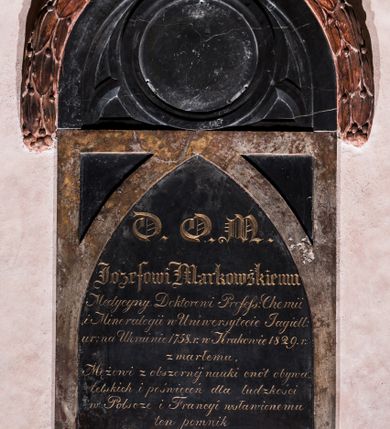 D. O. M.
Józefowi Markowskiemu
Medycyny Doktorowi Profess: Chemii
i Mineralogii w Uniwersytecie Jagiell:
ur: na Ukrainie 1758.r. w Krakowie 1829.r.
zmarłemu,
Mężowi z obszernéj nauki cnót obywa
telskich i poświęceń dla ludzkości
w Polscze i Francyi wsławionemu
ten pomnik